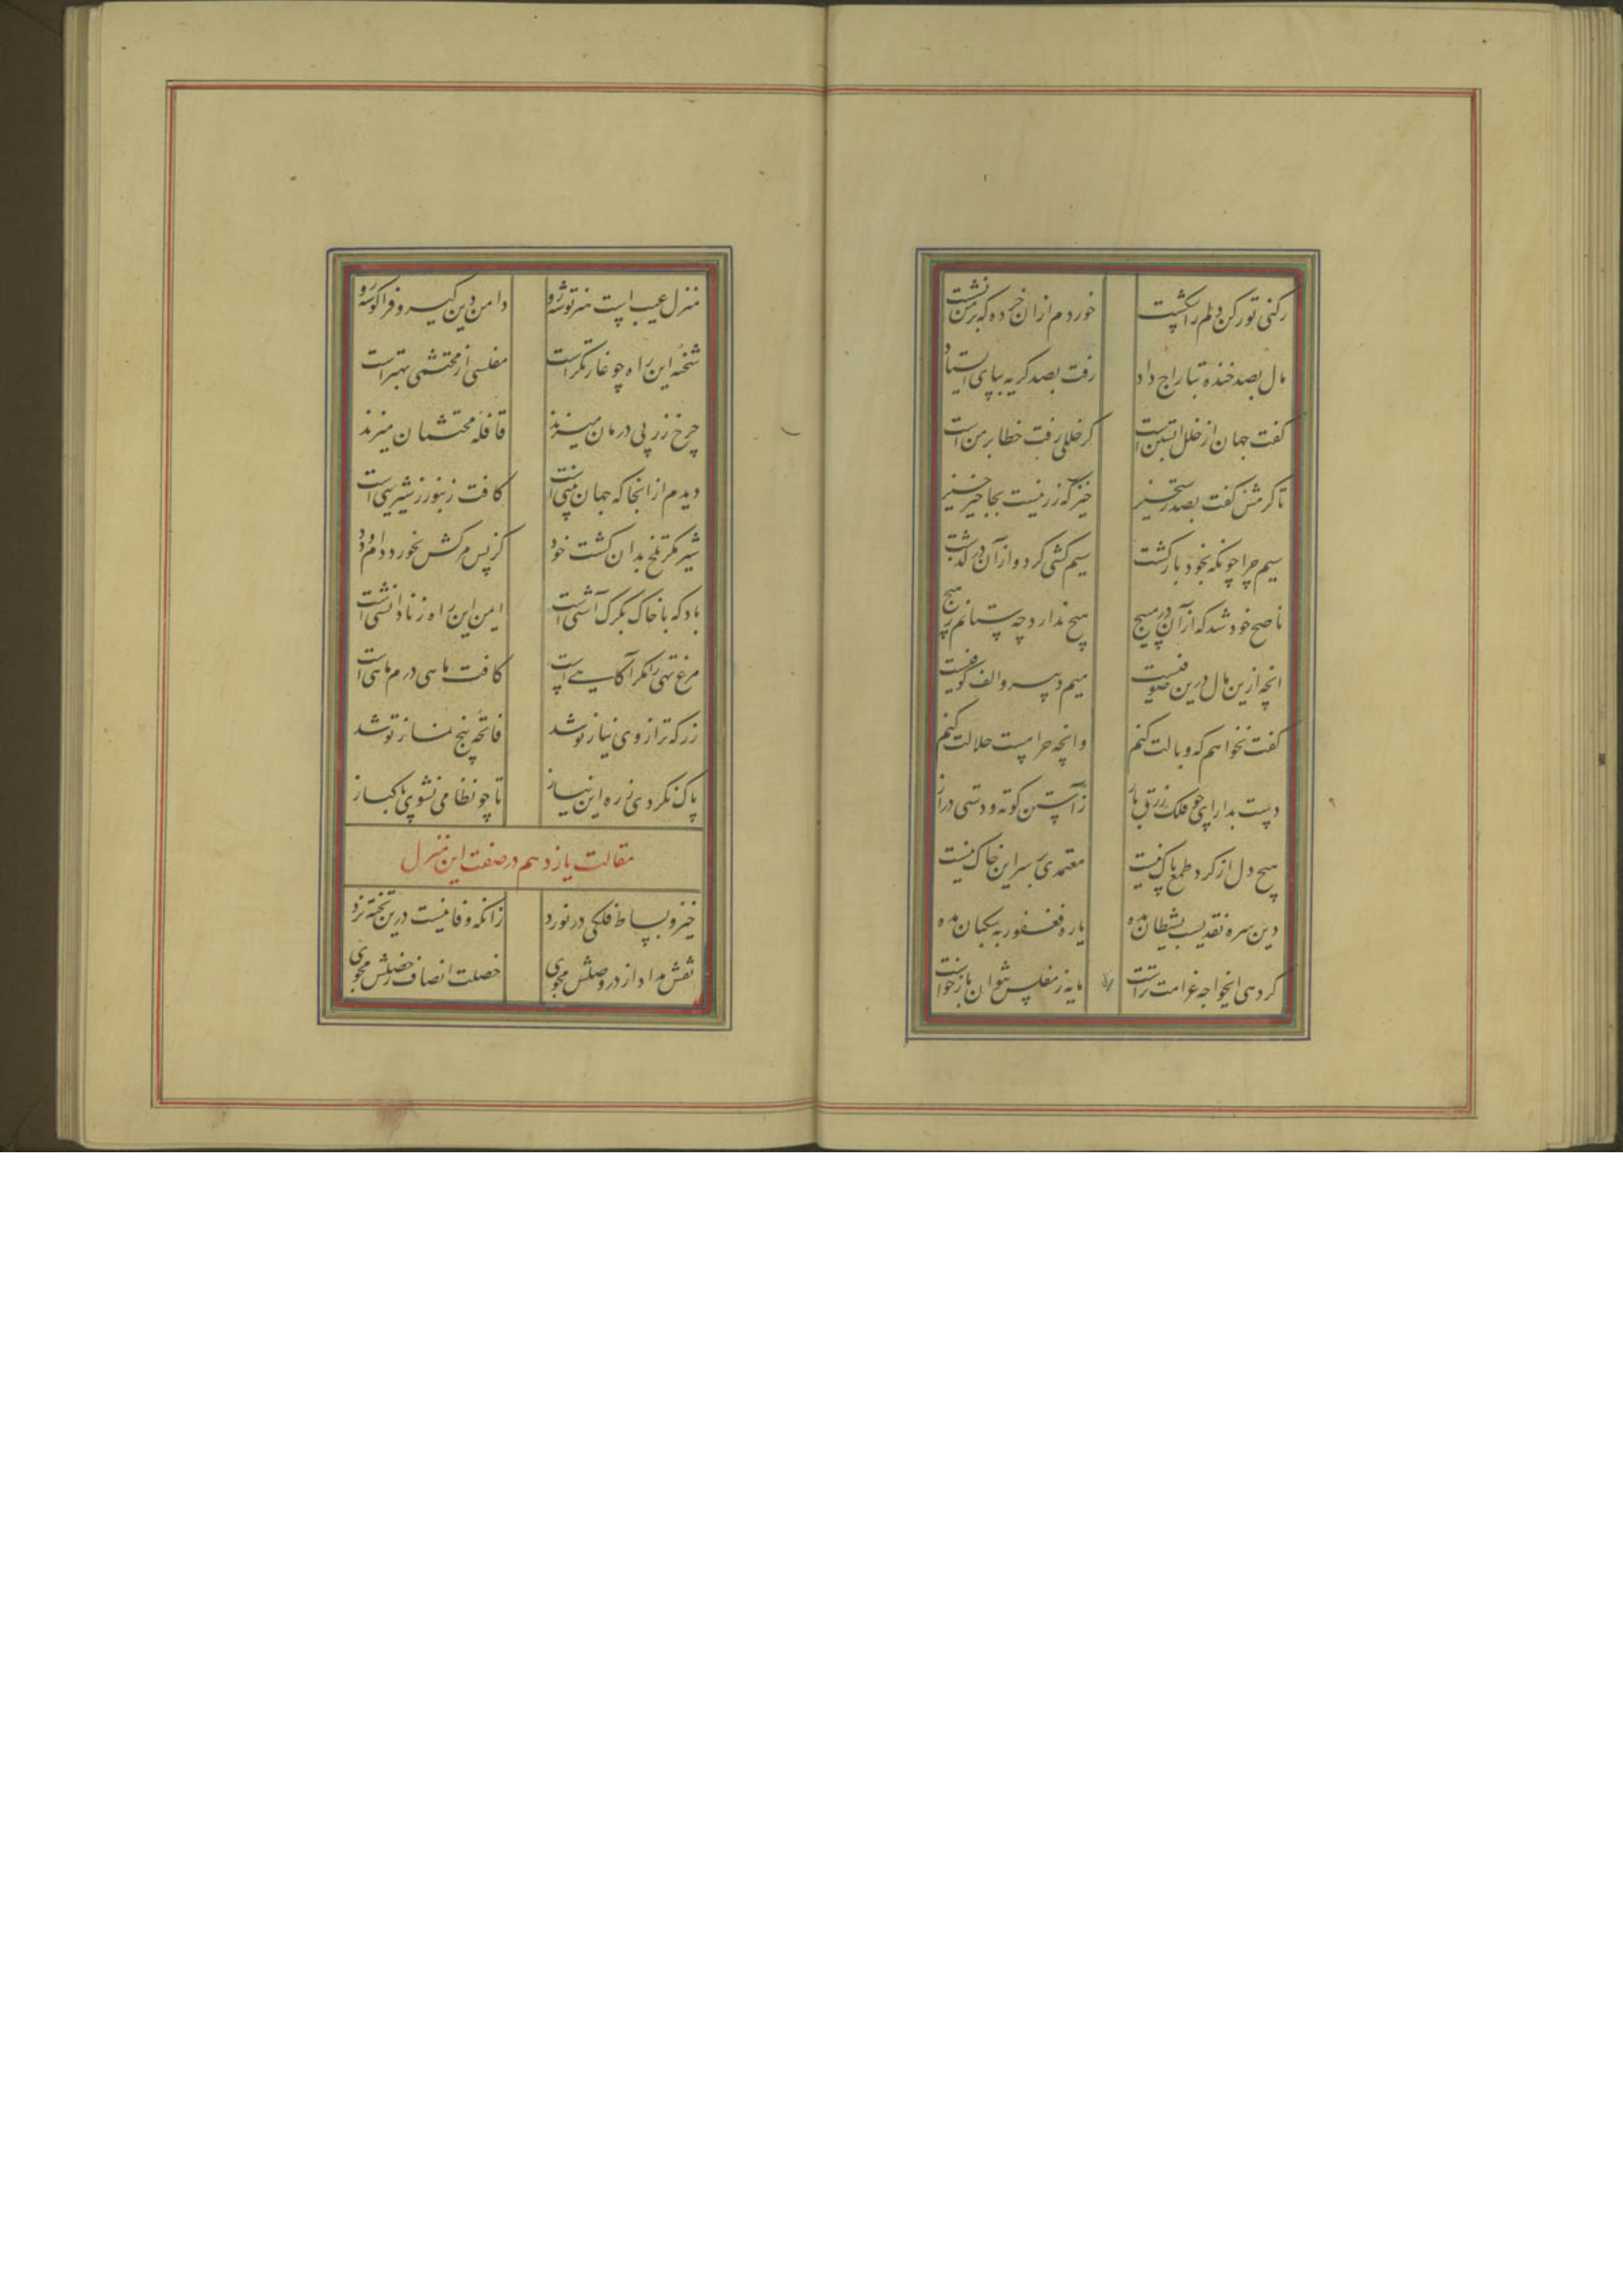 رکنی تو رکن دلم را شکست خوردم از ان خرده که بر من نشست
مال بصد خنده بتاراج داد رفت بصد کریه بپای ایستاد
کفت جهان از خلل است این است کر خللی رفت خطا بر من است
تا کرمش کفت بصد رستخیز خیز که زر نیست بجا خیز خیز
سیم چرا چونکه بخود بازکشت سیم کشی کرد و از آن درکذشت
ناصح خود شد که از آن در مپیچ هیچ ندارد چه ستانم ز هیچ
انچه ازین مال درین صوفیست میم و پسر و الف کوفیست
کفت نخواهم که وبالت کنم وانچه حرامست حلالت کنم
دست بدار ای چو فلک زرق باز ز آستین کوته و دستی دراز
هیچ دل از کرد طمع پاک نیست معتمدی بر سر این خاک نیست
دین سره نقدیست بشیطان مده یاره فغفور به سکبان مده
کر دهی ایخواجه غرامت تراست مایه ز مفلس نتوان بازخواست
منزل عیب است هنر توشه رو دامن دین کیر و فرا کوشه رو
شحنه این راه چو غارتکر است مفلسی از محتشمی بهتر است
چرخ زر پی درمان میزند قافله محتشمان میزند
دیدم از انجا که جهان بینی است کافت زنبور ز شیرینی است
شیر مکر تلخ بدان کشت خود کز پس مرکش نخورد دام و دد
باد که با خاک بکرک آشتی است ایمن این راه ز ناداشتی است
مرغ تهی را مکر آکاهی است کافت ماهی درم ماهی است
زر که ترازوی نیاز تو شد فاتحه پنج نماز تو شد
پاک نکردی ز ره این نیاز تا چو نظامی نشوی پاکباز
مقالت یازدهم در صفت این منزل
خیز و بساط فلکی درنورد زانکه وفا نیست درین تخته نرد
نقش مراد از در وصلش مجوی خصلت انصاف ز خصلش مجوی